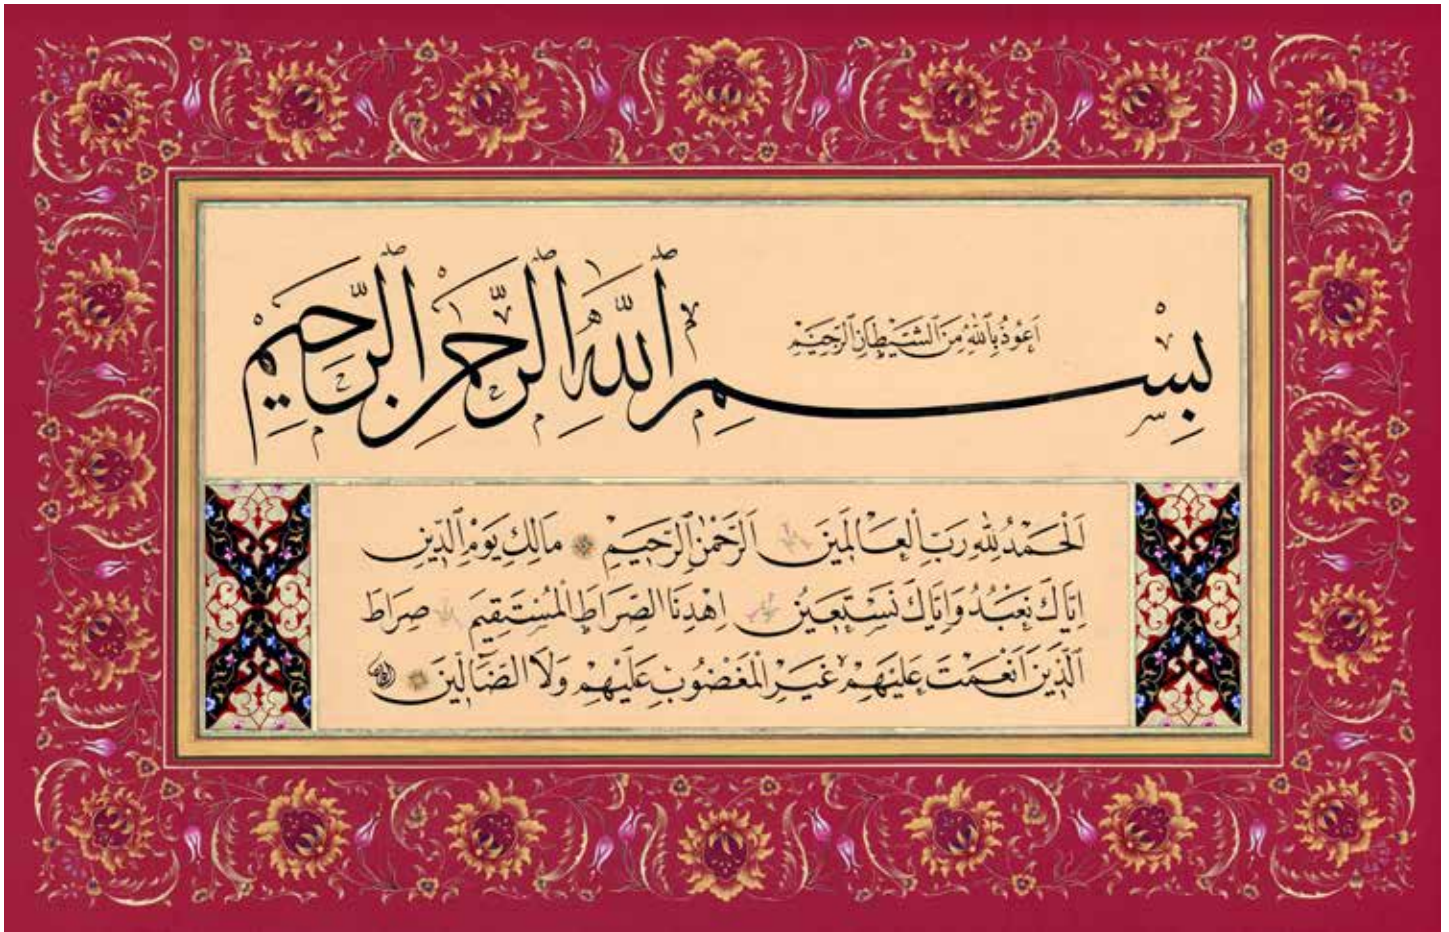 اَعُوذُ بِاللهِ مِنَ الشَّيْطَانِ الرَّجِيمِ
بِسْمِ ٱللّٰهِ ٱلرَّحْمٰنِ ٱلرَّحِيمِ
اَلْحَمْدُ لِلّٰهِ رَبِّ ٱلْعَالَمِينَ اَلرَّحْمٰنِ ٱلرَّحِيمِ مَالِكِ يَوْمِ ٱلدِّينِ
اِيَّاكَ نَعْبُدُ وَاِيَّاكَ نَسْتَعِينُ اِهْدِنَا الصِّرَاطَ الْمُسْتَقِيمَ صِرَاطَ
الَّذِينَ اَنْعَمْتَ عَلَيْهِمْ غَيْرِ الْمَغْضُوبِ عَلَيْهِمْ وَلَا الضَّٓالِّينَ